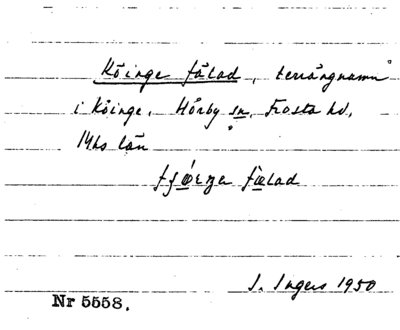 Köinge fälad, terrängnamn
i Köinge, Hörby sn, Frosta hd,
Mhs län
fälad
I. Ingers 1950
Nr 5558.